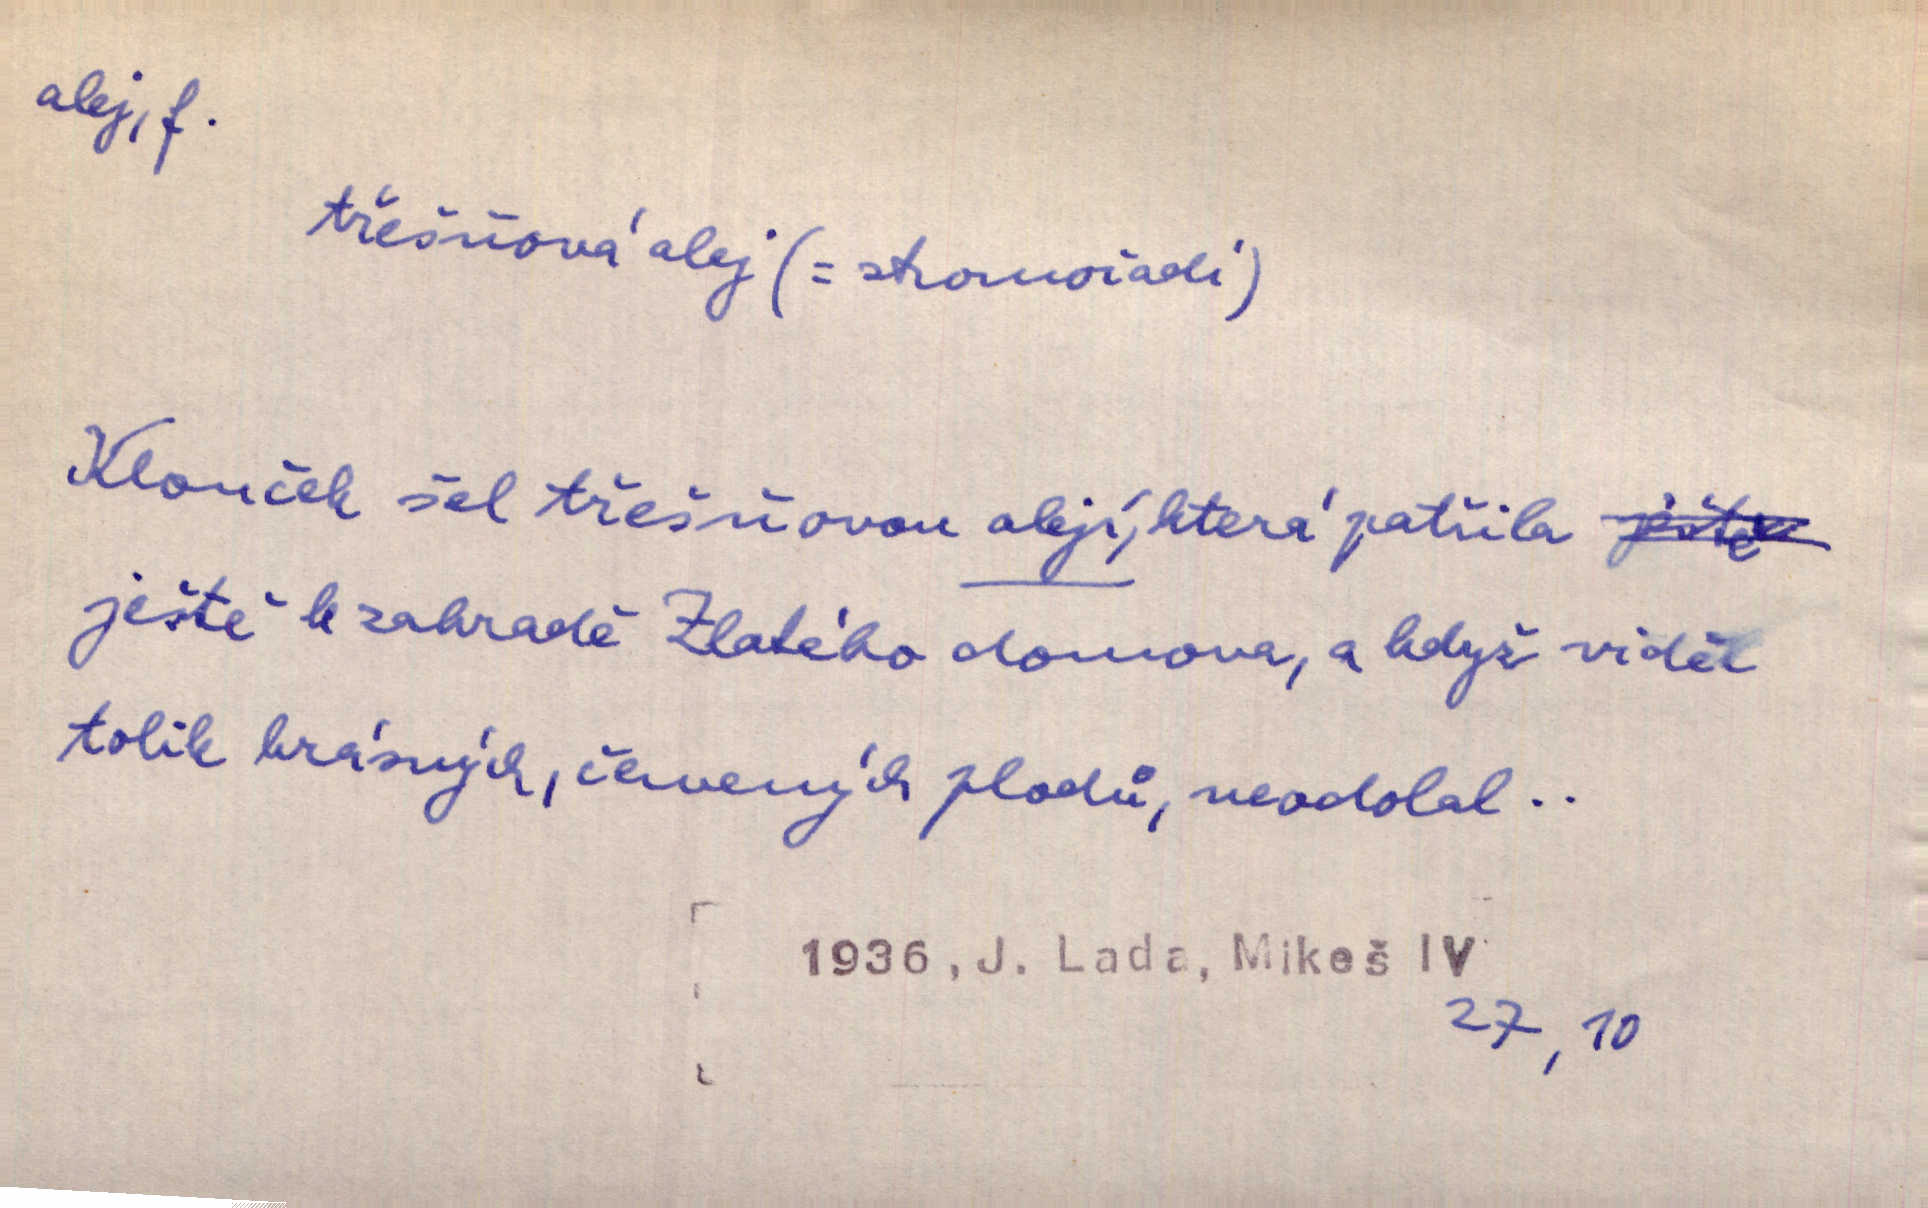 alej, f.
třešňová alej (= stromořadí)
Klouček šel třešňovou alejí, která patřila ještě
ještě k zahradě Zlatého domova, a když viděl
tolik krásných, červených plodů, neodolal ..
1936, J. Lada, Mikeš IV
27, 10